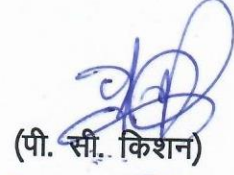 (पी. सी. किशन)